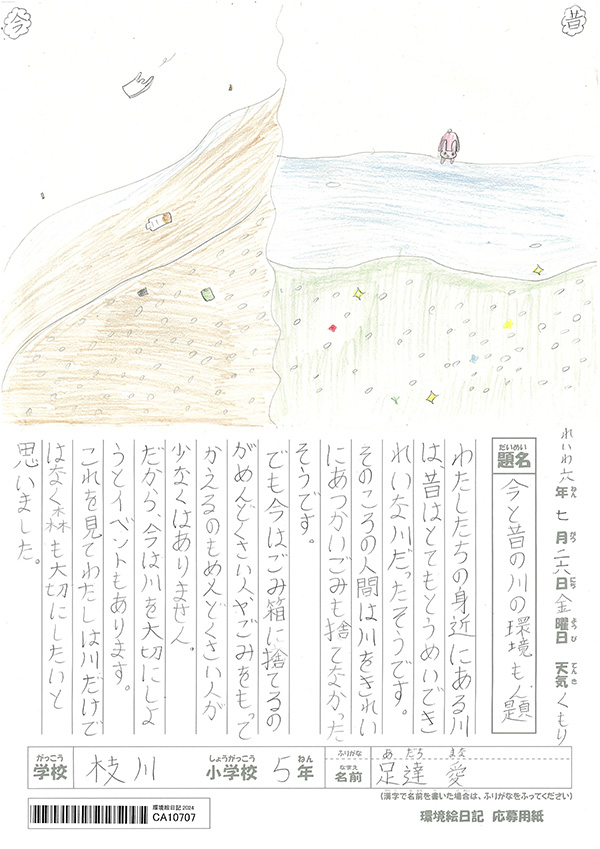 今
昔
れいわ六年七月二六日金曜日 天気くもり
ねん
がつ
にち
よう び
てん き
だいめい
題名
今と昔の川の環境も題
わたしたちの身近にある川
は、昔はとてもとうめいでき
れいな川だったそうです。
そのころの人間は川をきれい
にあつかいごみも捨てなかった
そうです。
でも今はごみ箱に捨てるの
がめんどくさい人やごみをもって
かえるのもめんどくさい人が
少なくはありません。
だから、今は川を大切にしよ
うとイベントもあります。
これを見てわたしは川だけで
はなく森も大切にしたいと
思いました。
がっこう
学校
枝川
しょうがっこう
小学校
5
ねん
年
ふりがな
あ だち まな
なまえ
名前
足達 愛
(漢字で名前を書いた場合は、ふりがなをふってください)
環境絵日記 2024
CA10707
環境絵日記 応募用紙